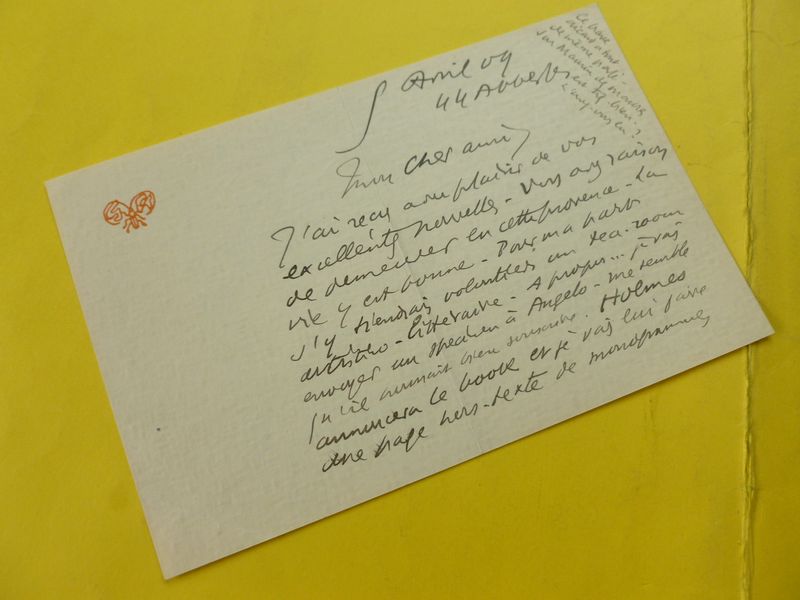 5 Avril 09
44 Abbesses
Mon cher ami,
J'ai reçu avec plaisir de vos
excellentes nouvelles - Vous avez raison
de demeurer en cette province - La
vie y est bonne - Pour ma part
j'y tiendrais volontiers un tea-room
artistico-littéraire - A propos... je vais
envoyer un specimen à Angelo - me semble
qu'il aurait bien souscrire. Holmes
annoncera le book et je vais lui faire
une page hors-texte de monogrammes